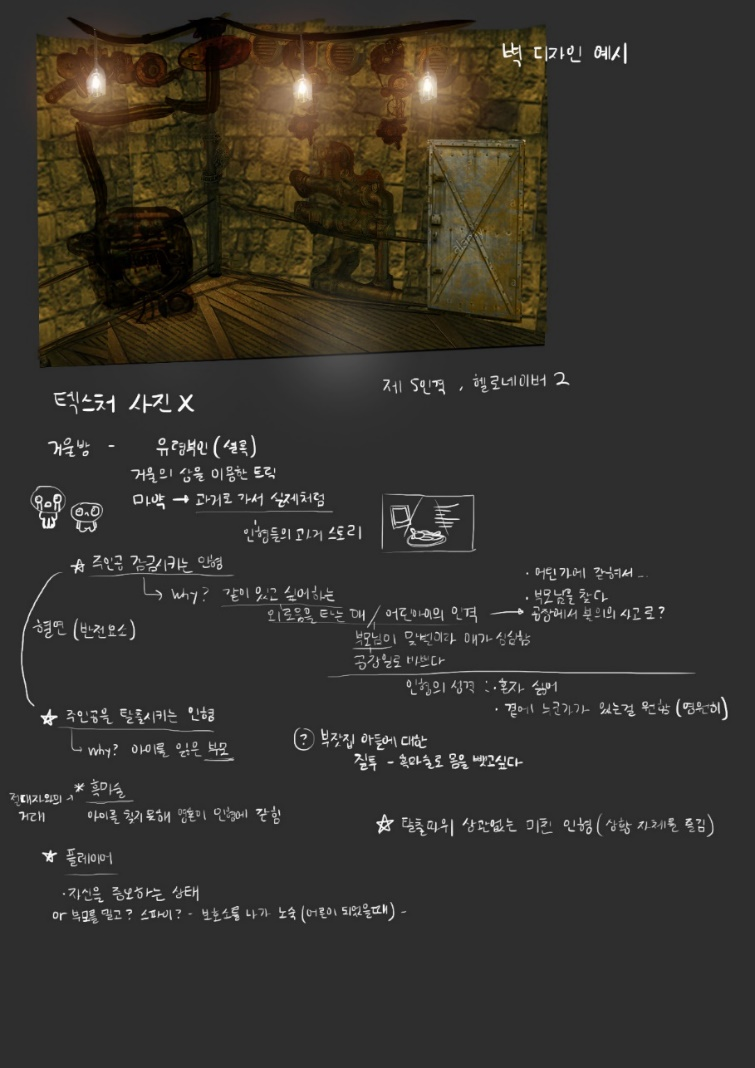 벽 디자인 예시
제 5인격 , 헬로네이버 2
텍스처 사진 X
거울방 - 유령부인 (셜록)
거울의 상을 이용한 트릭
마약 → 과거로 가서 실제처럼
인형들의 과거 스토리
☆ 주인공 감금시키는 인형
why? 같이 있고 싶어하는
외로움을 타는 애 / 어린아이의 인격
· 어딘가에 갇혀서 ...
· 부모님을 찾다
공장에서 불의의 사고로?
부모님이 맞벌이라 매가 심심함
공장일로 바쁘다
혈연 (반전요소)
인형의 성격 : · 혼자 싫어
· 곁에 누군가가 있는걸 원함 (영원히)
☆ 주인공을 탈출시키는 인형
why? 아이를 잃은 부모
? 부잣집 아들에 대한
질투 - 흑마술로 몸을 뺏고싶다
절대자와의 거래
* 흑마술
아이를 찾지 못해 영혼이 인형에 갇힘
☆ 탈출따위 상관없는 미친 인형 (상황 자체를 즐김)
☆ 플레이어
· 자신을 증오하는 상태
or 부모를 밀고? 스파이? - 보호소를 나가 노숙 (어른이 되었을때) -